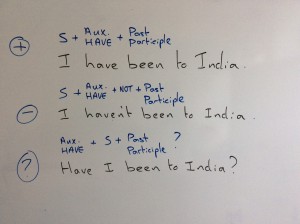 + S + Aux. HAVE + Past Participle
I have been to India.
- S + Aux. HAVE + NOT + Past Participle
I haven't been to India.
? Aux. HAVE + S + Past Participle ?
Have I been to India?